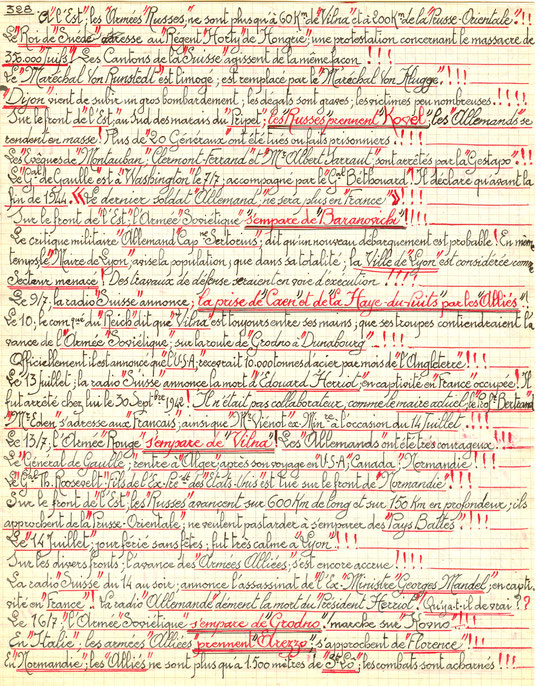 328
A l'Est, les Armées Russes, ne sont plus qu'à 60 Kms de "Vilna" et à 200 Kms de la "Prusse-Orientale" !!!
Le "Roi de Suède" adresse au "Régent" "Horty" de "Hongrie", une protestation concernant le massacre de
350.000 Juifs ! Les Cantons de la "Suisse" agissent de la même façon !!!
Le "Maréchal Von Runstedt" est limogé, est remplacé par le "Maréchal Von Klugge" !!!
"Dijon" vient de subir un gros bombardement; les dégâts sont graves, les victimes peu nombreuses !!!
Sur le front de l'Est, au sud des marais du "Pripet", les "Russes" prennent "Kovel", les "Allemands" se
rendent en masse ! Plus de 20 Généraux ont été tués ou faits prisonniers !!!
Les Evêques de "Montauban", "Clermont-Ferrand" et "Mr Albert Sarraut", sont arrêtés par la "Gestapo" !!!
Le "Gal de Gaulle" est à "Washington" le 7/7, accompagné par le "Gl Béthouard". Il déclare qu'avant la
fin de 1944 « Le dernier soldat "Allemand", ne sera plus en "France" » !!!
Sur le front de l'Est, l'Armée "Soviétique" s'empare de "Baranovichi" !!!
Le critique militaire "Allemand" Cap ne "Sertorius", dit qu'un nouveau débarquement est probable ! En même
temps le "Maire de Lyon", avise la population, que dans sa totalité, la "Ville de Lyon" est considérée comme
Secteur menacé ! Des travaux de défense seraient en voie d'exécution !!!!
Le 9/7, la radio "Suisse" annonce, la prise de "Caen" et de la "Haye-du-Puits" par les "Alliés" !
Le 10, le com que du "Reich" dit que "Vilna" est toujours entre ses mains, que ses troupes contiendraient l'a
vance de l'"Armée Soviétique", sur la route de "Grodno" à "Dunabourg" !!!
Officiellement il est annoncé que l'"U.S.A", recevrait 10.000 tonnes d'acier par mois de l'"Angleterre" !!!
Le 13 juillet, la radio "Suisse" annonce la mort d'"Edouard Herriot", en captivité en "France" occupée ! Il
fut arrêté chez lui le 30 Sept bre 1942 ! Il n'était pas collaborateur, comme le maire actuel, le Prof r "Bertrand"
"Mr Eden" s'adresse aux "Français", ainsi que "Mr Vienot" ex Min re à l'occasion du 14 Juillet !!!
Le 13/7, l'"Armée Rouge" s'empare de "Vilna" ! Les "Allemands" ont été très courageux !!!
Le "Général de Gaulle", rentre à "Alger" après son voyage en "U.S.A", "Canada", "Normandie" !!!
Le "Gal Th. Roosevelt" fils de l'Ex-Pr t des "Etats-Unis" est tué sur le front de "Normandie" !!!
Sur le front de l'Est, les "Russes" avancent sur 600 Km de long et sur 150 Km en profondeur, ils
approchent de la "Prusse-Orientale", ne veulent pas tarder à s'emparer des "Pays Baltes" !!!
Le "14 Juillet", jour férié sans fêtes, fut très calme à "Lyon" !!!
Sur les divers fronts, l'avance des "Armées Alliées", s'est encore accrue !!!
La radio "Suisse" du 14 au soir, annonce l'assassinat de l'Ex-"Ministre" "Georges Mandel", en capti
vité en "France" ! La radio "Allemande" dément la mort du "Président Herriot" ! Qu'y a-t-il de vrai ? ?
Le 16/7 l'"Armée Soviétique" s'empare de "Grodno", marche sur "Kovno" !!!
En "Italie", les armées "Alliées" prennent "Arezzo", s'approchent de "Florence" !!!
En "Normandie", les "Alliés" ne sont plus qu'à 1500 mètres de "St Lo", les combats sont acharnés !!!